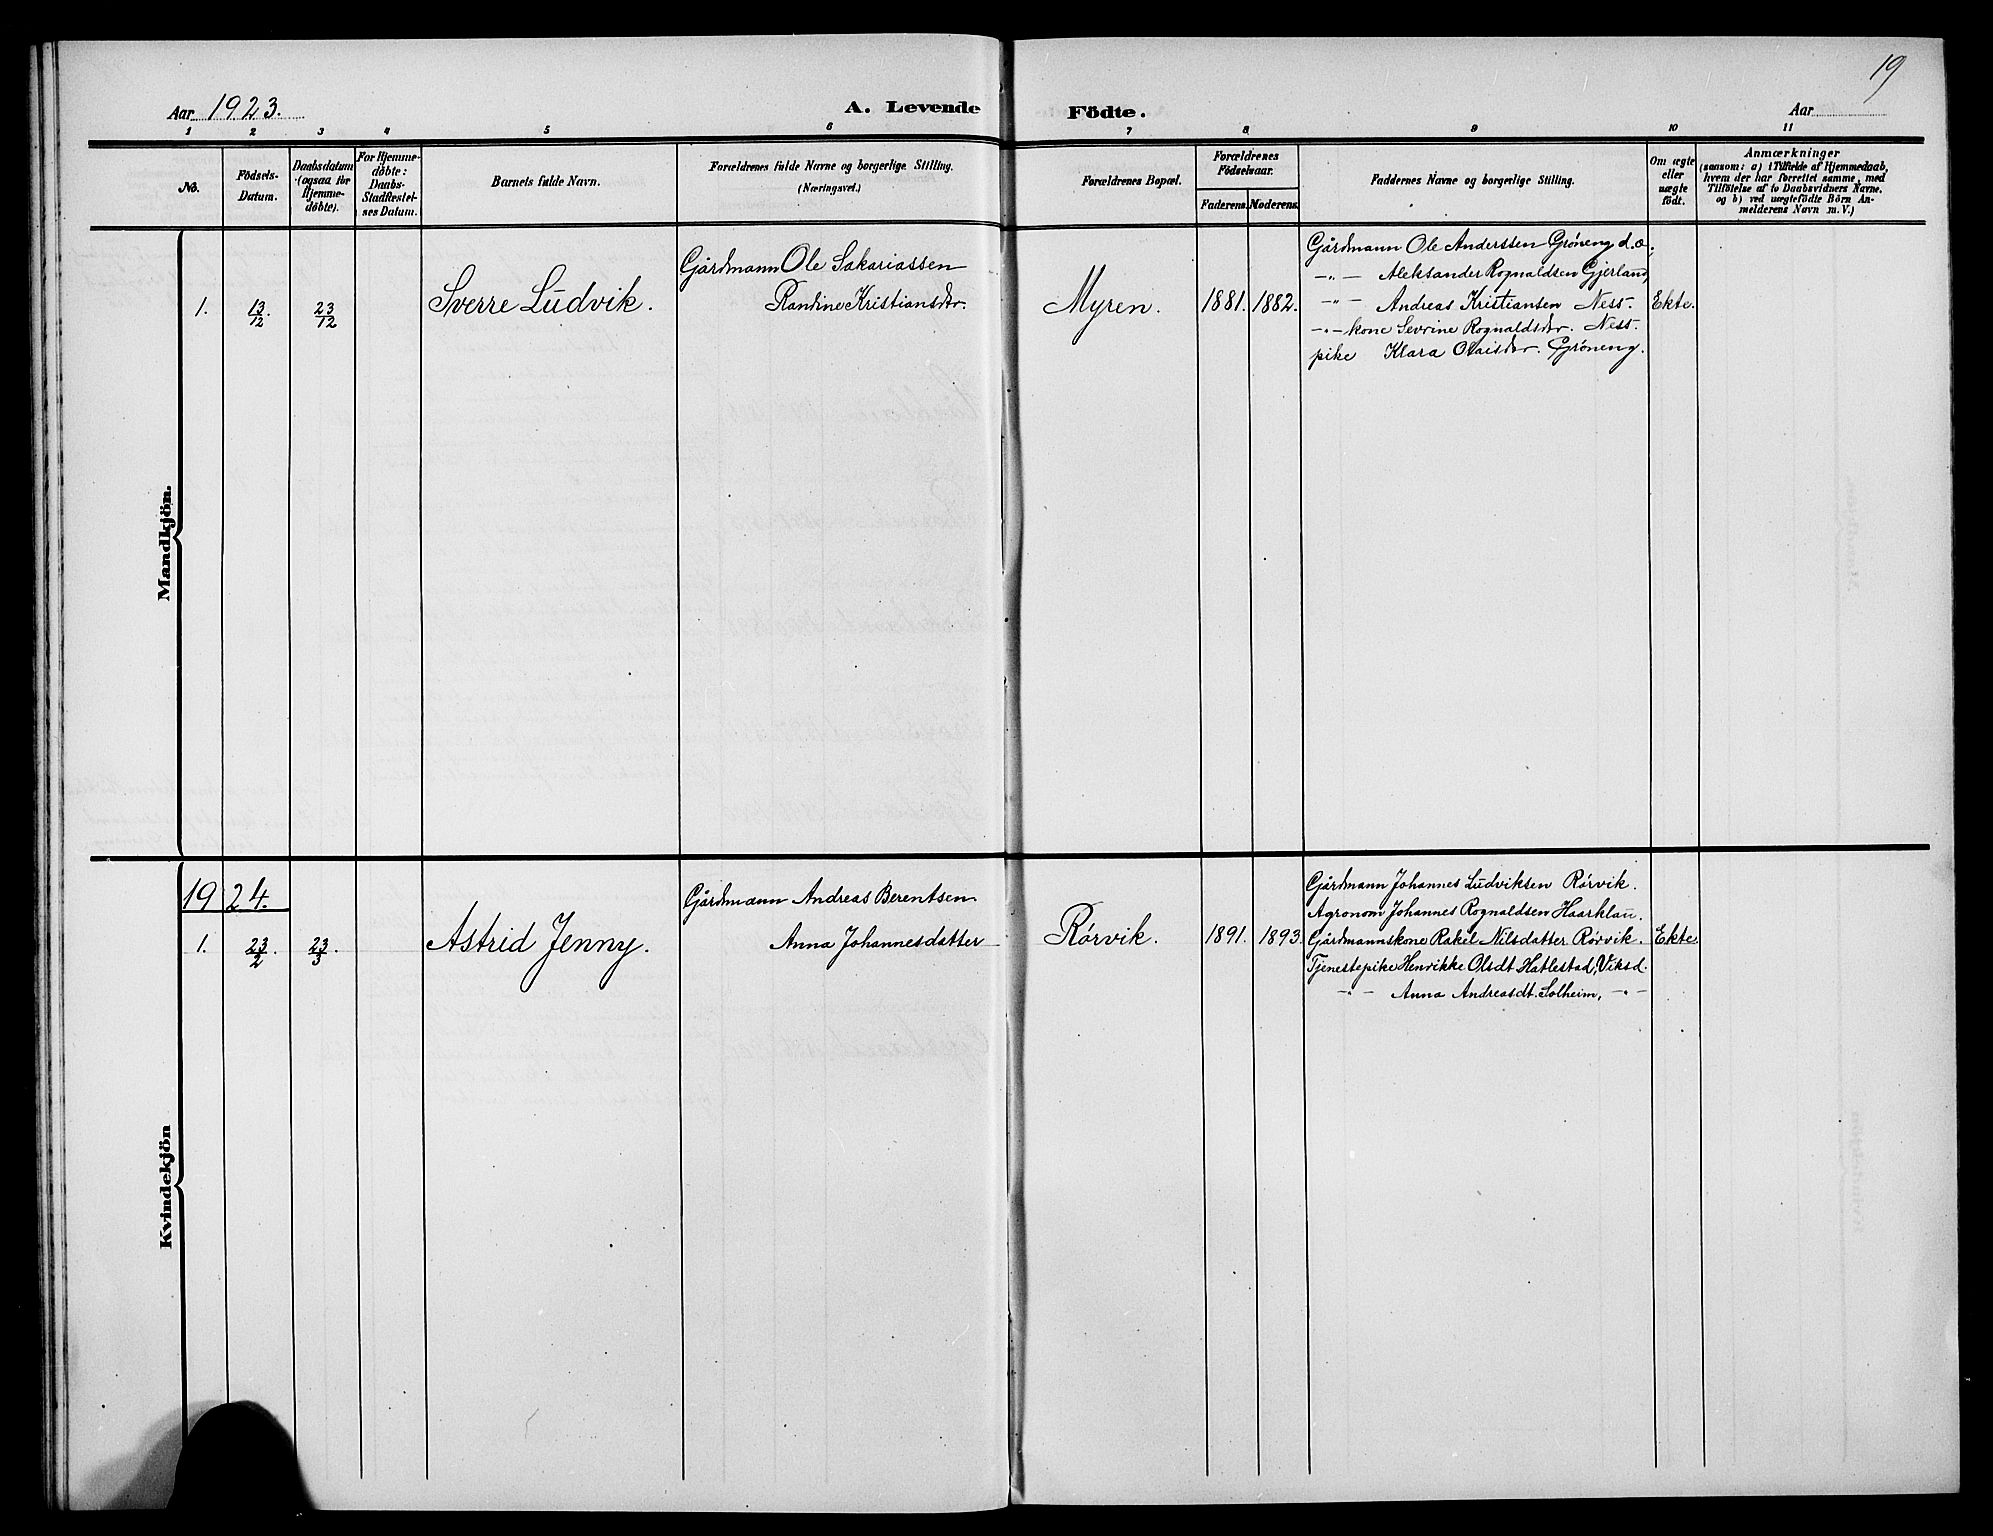 19
Aar 1923.
A. Levende Födte.
Aar
1 2 3 4 5 6 7 8 9 10 11
No.
Födsels-
Datum.
Daabsdatum
(ogsaa for
Hjemme-
döbte).
For Hjemme-
döbte:
Daabs-
Stadfæstel-
ses Datum.
Barnets fulde Navn.
Forældrenes fulde Navne og borgerlige Stilling.
(Næringsvei.)
Forældrenes Bopæl.
Forældrenes
Födselsaar.
Faderens. Moderens.
Faddernes Navne og borgerlige Stilling.
Om ægte
eller
uægte
födt.
Anmærkninger
(saasom: a) i Tilfælde af Hjemmedaab,
hvem der har forrettet samme, med
Tilföielse af to Daabsvidners Navne.
og b) ved uægtefödte Börn An-
melderens Navn m. V.)
Mandkjön.
1. 13/12. 23/12
Sverre Ludvik.
Gårdmann Ole Sakariassen
Randine Kristiansdtr.
Myren.
1881. 1882.
Gårdmann Ole Anderssen Grøneng d.a.;
-"- Aleksander Rognaldsen Gjerland,
-"- Andreas Kristiansen Ness.
-"- kone Sevrine Rognaldsdtr. Ness.
pike Klara Olaisdtr. Grøneng.
Ekte.
Kvindekjön
1924.
1. 23/2. 23/3.
Astrid Jenny.
Gårdmann Andreas Berentsen
Anna Johannesdatter
Rørvik.
1891. 1893.
Gårdmann Johannes Ludviksen Rørvik.
Agronom Johannes Rognaldsen Haarklau.
Gårdmannskone Rakel Nilsdatter Rørvik.
Tjenestepike Henrikke Olsdt Hatlestad, Viksd.
-"- Anna Andreasdt. Solheim, -"-
Ekte